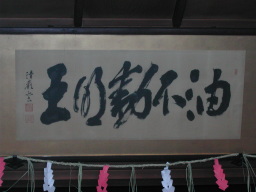 油不動明王